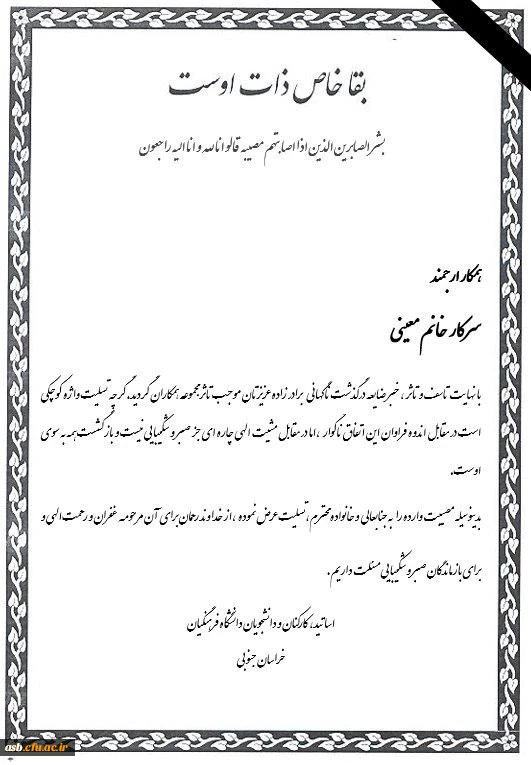 بقا خاص ذات اوست
بشر الصابرین الذین اذا اصابتهم مصیبه قالوا انا لله و انا الیه راجعون
همکار ارجمند
سرکار خانم معینی
با نهایت تاسف و تاثر، خبر ضایعه درگذشت ناگهانی برادر زاده عزیزتان موجب تاثر مجموعه همکاران گردید. گرچه تسلیت واژه کوچکی
است در مقابل اندوه فراوان این اتفاق ناگوار ، اما در مقابل مشیت الهی چاره ای جز صبر و شکیبایی نیست و بازگشت همه به سوی
اوست.
بدینوسیله مصیبت وارده را به جنابعالی و خانواده محترم ، تسلیت عرض نموده ، از خداوند رحمان برای آن مرحومه غفران و رحمت الهی و
برای بازماندگان صبر و شکیبایی مسئلت داریم.
اساتید، کارکنان و دانشجویان دانشگاه فرهنگیان
خراسان جنوبی
asb.cfu.ac.ir